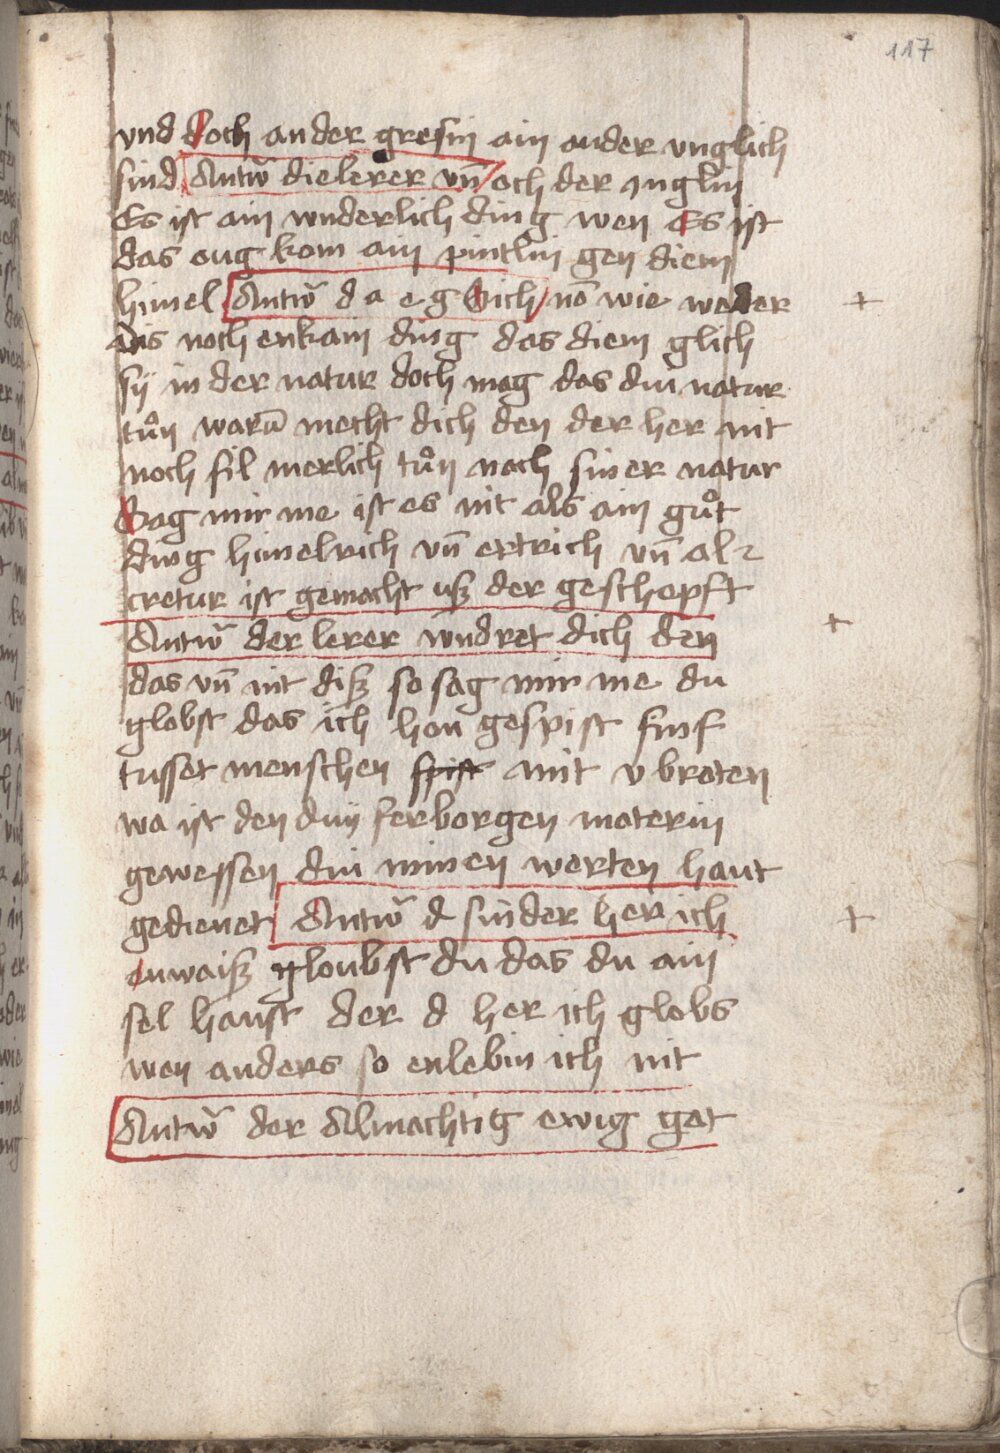 117
vnd doch an der gresin ain ander vnglich
sind Antw̄ die lerer vn̄ och der junglin
Es ist ain wnderlich ding wen es ist
das oug kom ain pintlin gen diem
himel Antw̄ d a e g Sich nō wie weder
dis noch enkain ding das diem glich
sÿ in der natur doch mag das diu natur
tůn warū mecht dich den der her nit
noch fil merlich tůn nach siner natur
Sag mir me ist es nit als ain gůt
ding himelrich vn̄ ertrich vn̄ al
cretur ist gemacht uß der geschepft
Antw̄ der lerer wndret dich den
das vn̄ nit diß so sag mir me du
globst das ich hon gespist finf
tusset menschen spist mit v broten
wa ist den diu ferborgen materiu
gewessen diu minen worten haut
gedienet Antw̄ d sinder her ich
enwaiß gloubst du das du ain
sel haust der d her ich globs
wen anders so enlebin ich nit
Antw̄ der Almachtig ewig got